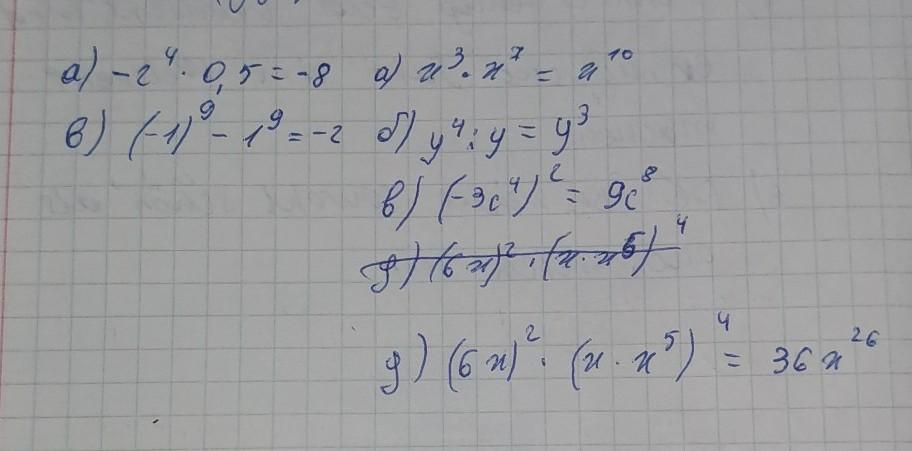 а) -2⁴ · 0,5 = -8 а) x³ · x⁷ = x¹⁰
в) (-1)⁹ - 1⁹ = -2 б) y⁴ : y = y³
в) (-3c⁴)² = 9c⁸
д) (6x)² · (x · x⁵)⁴
д) (6x)² · (x · x⁵)⁴ = 36x²⁶